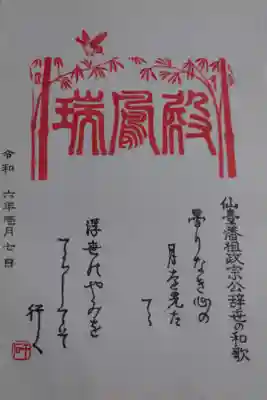 瑞鳳殿
仙臺藩祖政宗公辞世の和歌
曇りなき心の
月を先た
てゝ
浮世のやみを
てらしてそ
行く
令和 六年 四月 七日